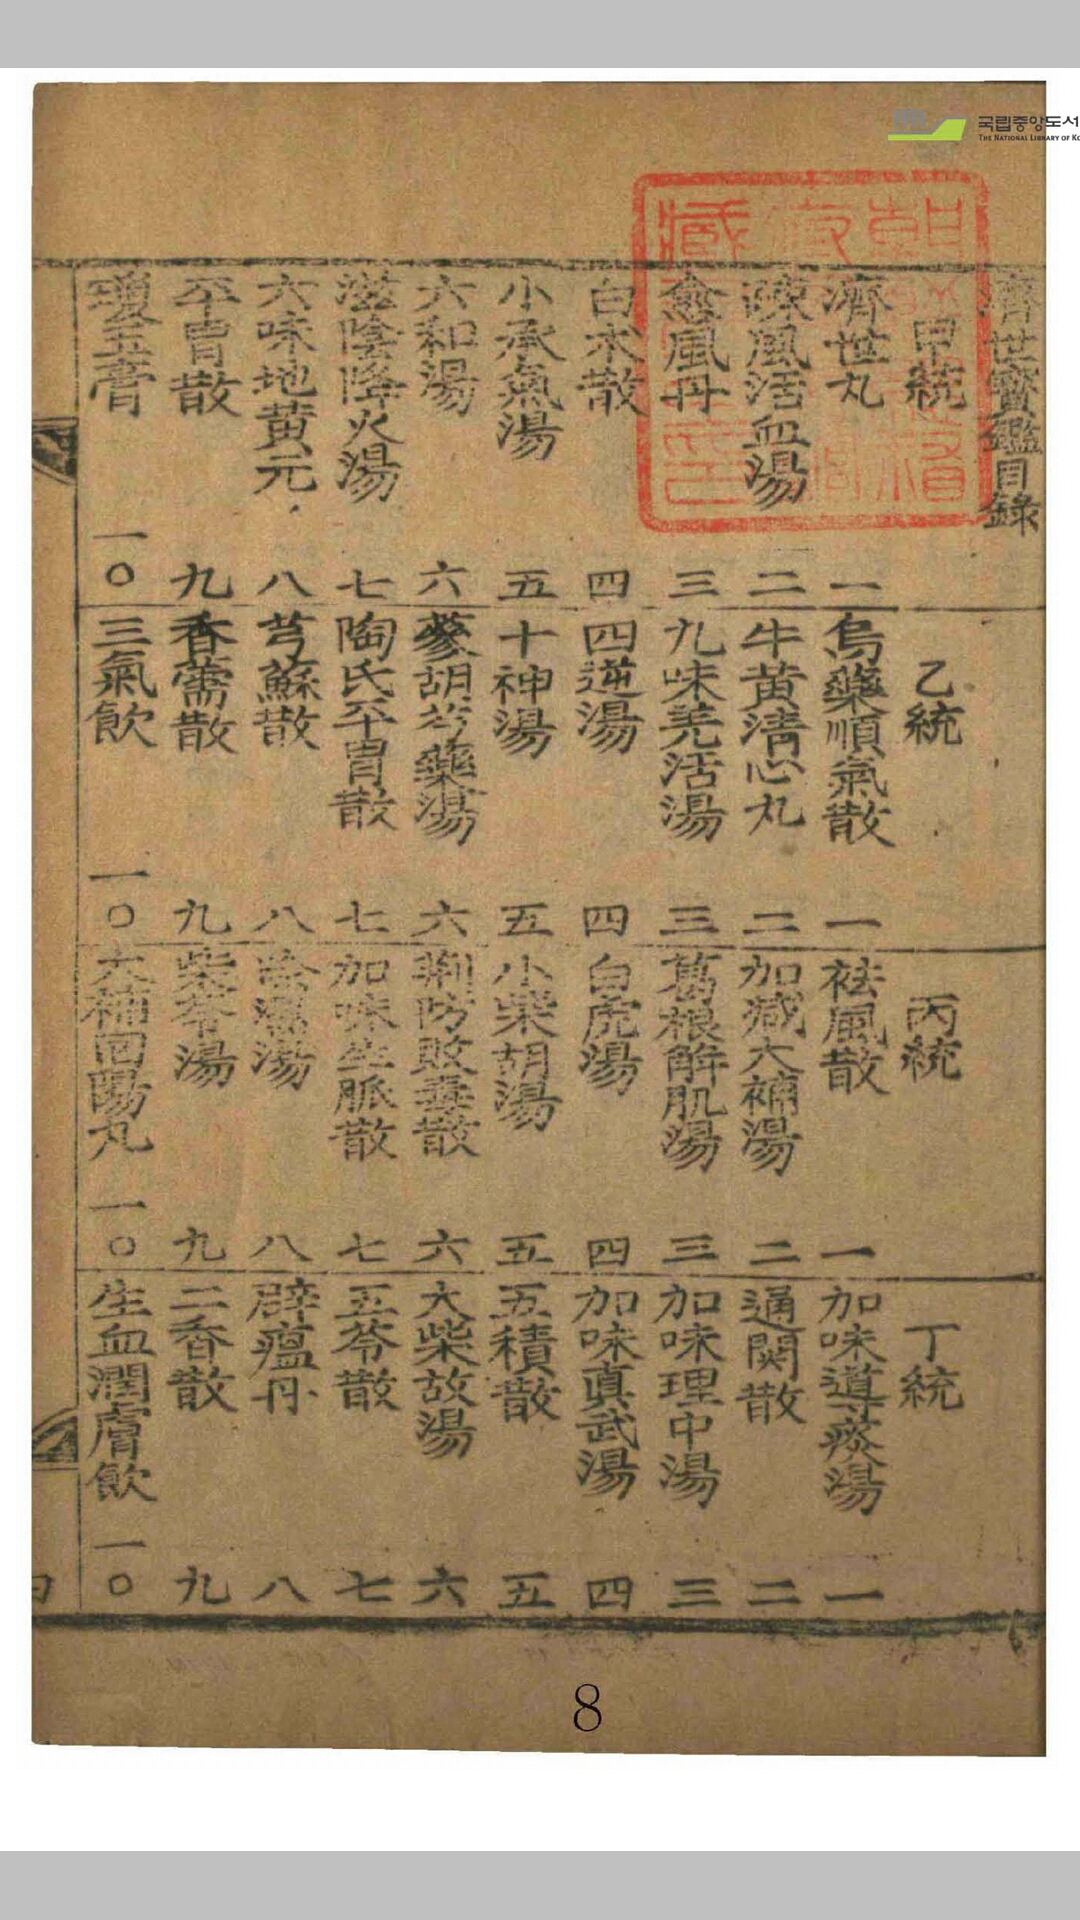 국립중앙도서
THE NATIONAL LIBRARY OF KO
濟世寶鑑目錄
甲統
濟世丸 一
疎風活血湯 二
愈風丹 三
白朮散 四
小承氣湯 五
六和湯 六
滋陰降火湯 七
六味地黄元 八
平胃散 九
瓊玉膏 一〇
乙統
烏藥順氣散 一
牛黄清心丸 二
九味羌活湯 三
四逆湯 四
十神湯 五
蔘胡芍藥湯 六
陶氏平胃散 七
芎蘇散 八
香薷散 九
三氣飮 一〇
丙統
祛風散 一
加减大補湯 二
葛根解肌湯 三
白虎湯 四
小柴胡湯 五
荊防敗毒散 六
加味生脈散 七
除濕湯 八
柴苓湯 九
大補回陽丸 一〇
丁統
加味導痰湯 一
通関散 二
加味理中湯 三
加味眞武湯 四
五積散 五
大柴故湯 六
五苓散 七
辟瘟丹 八
二香散 九
生血潤膚飮 一〇
8